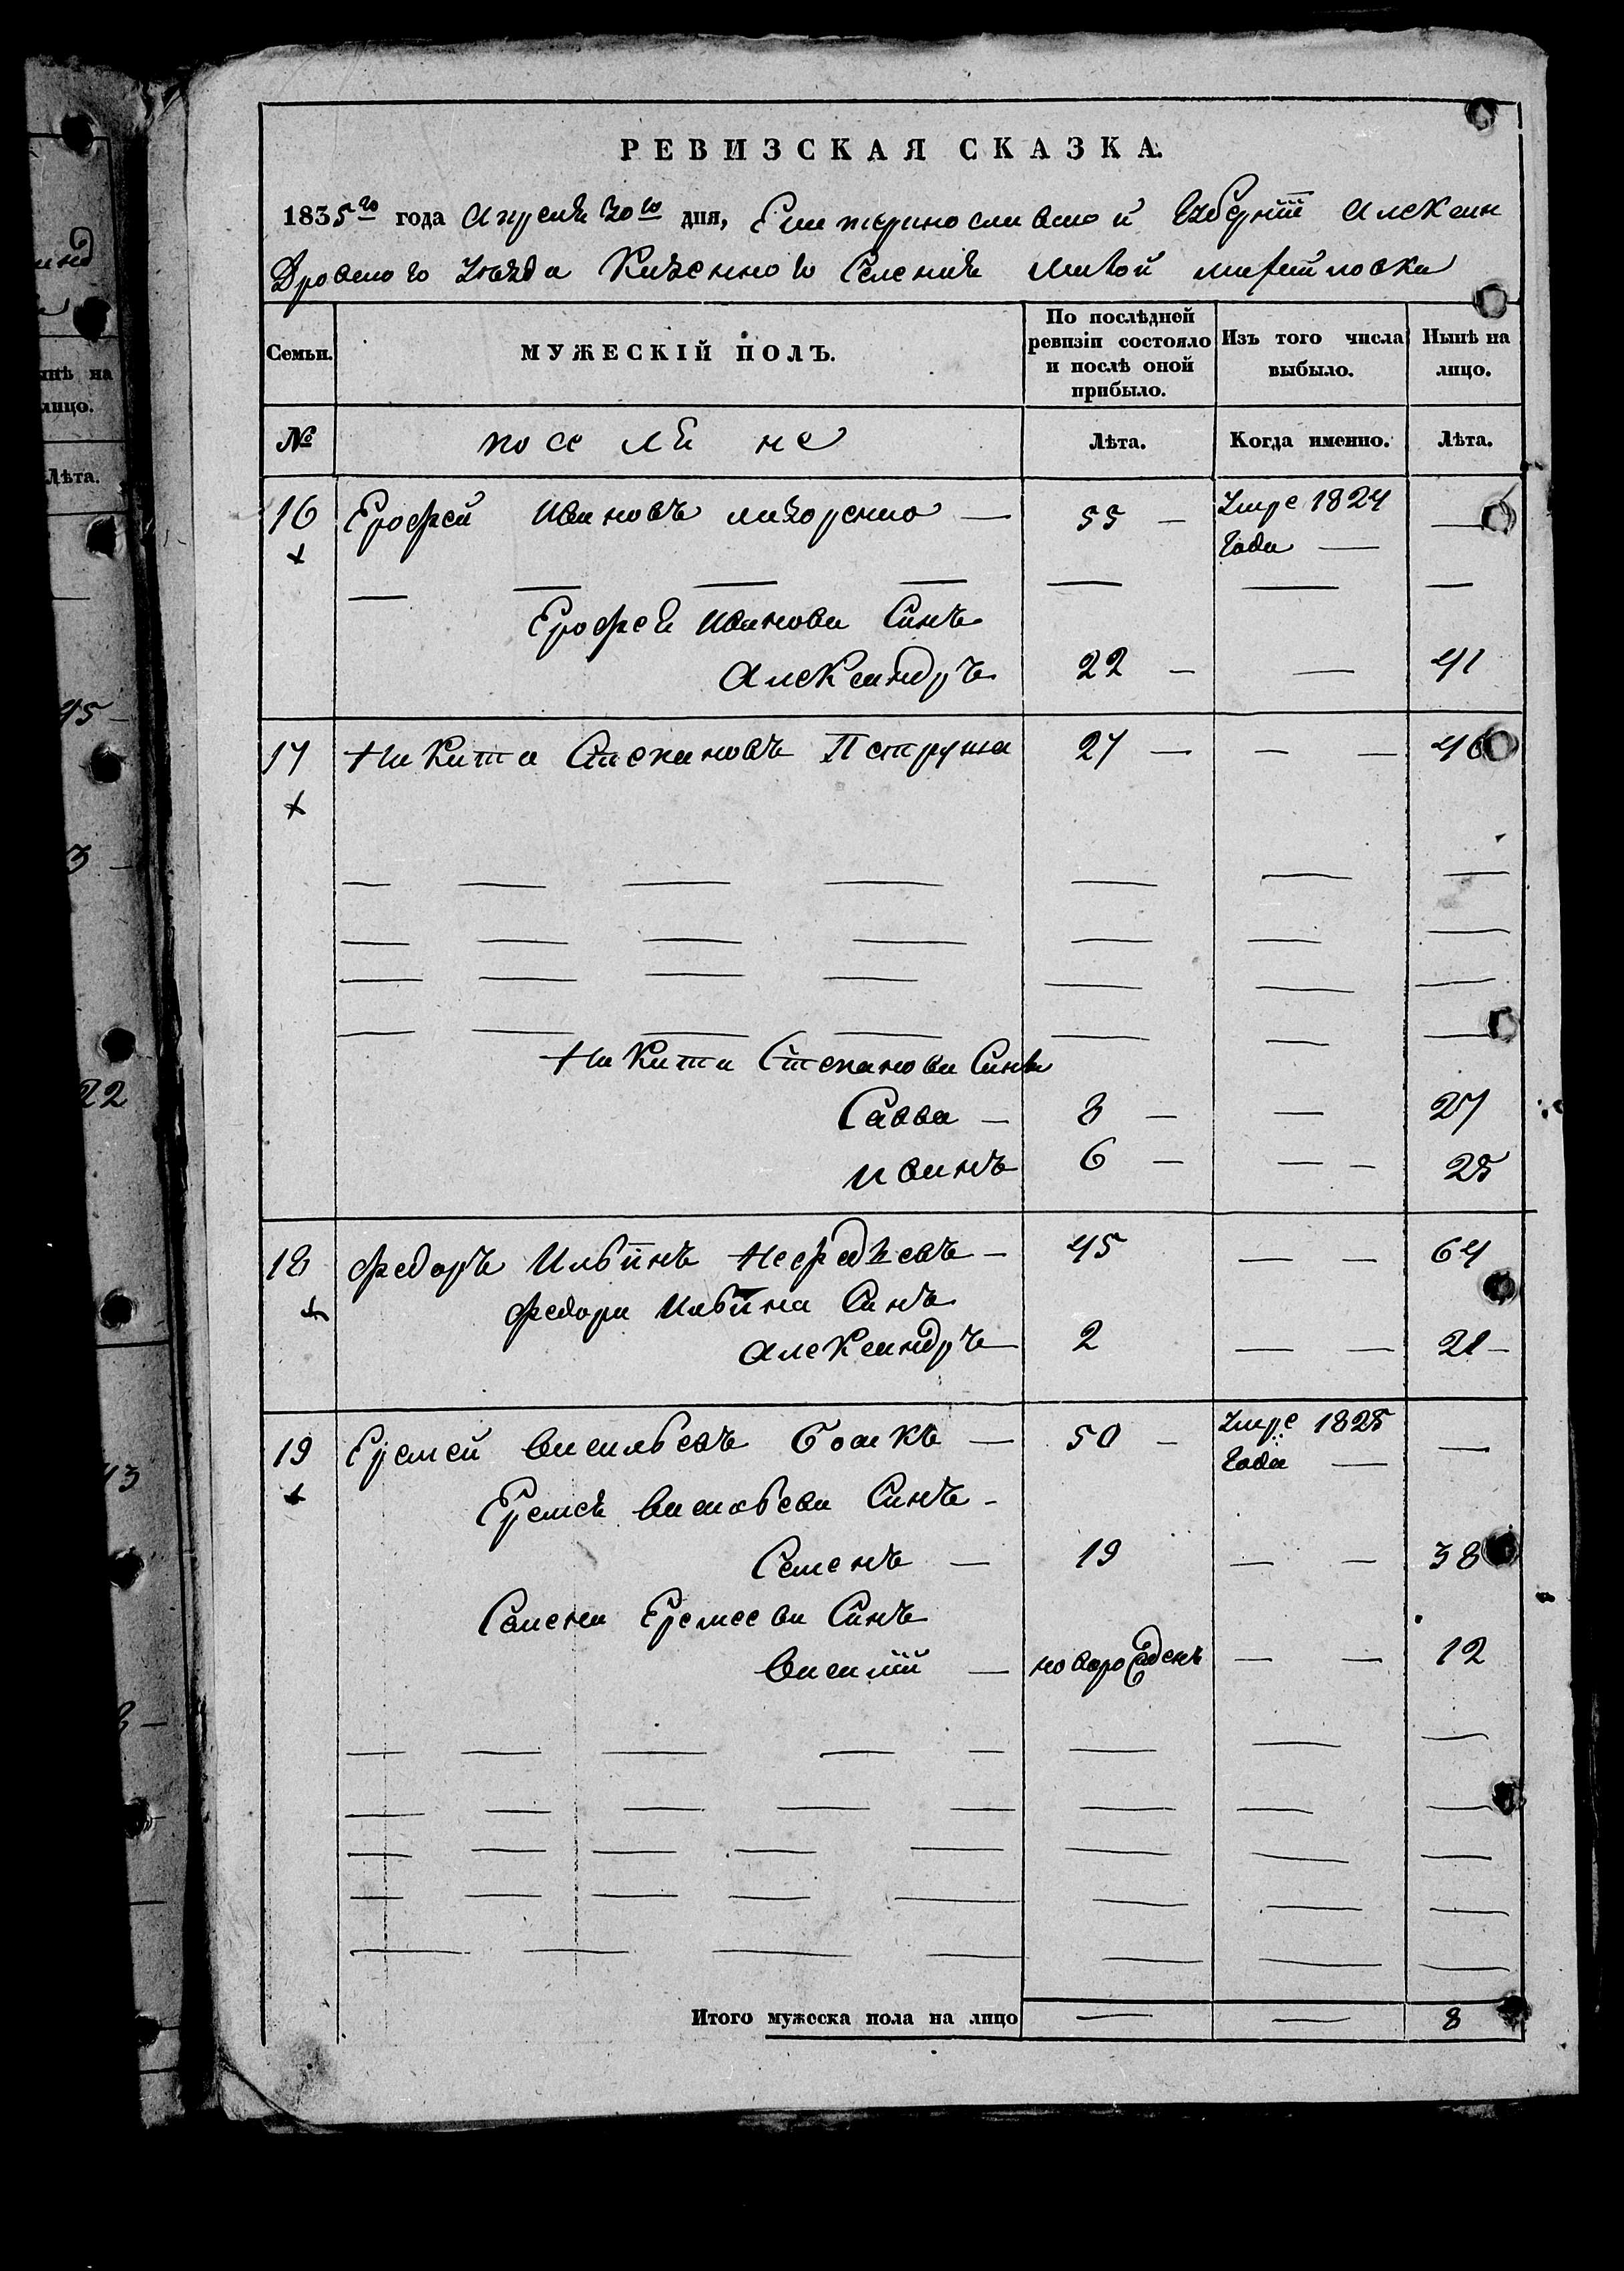 РЕВИЗСКАЯ СКАЗКА.
1835го года Апреля 30го дня, Екатеринославской Губерніи Алексан
Дровского Уѣзда Казенного Селенія Малой михайловки
Семьи.
МУЖЕСКІЙ ПОЛЪ.
По послѣдней ревизіи состояло и послѣ оной прибыло.
Изъ того числа выбыло.
Нынѣ на лицо.
№
поселяне
Лѣта.
Когда именно.
Лѣта.
16 Ерофей Ивановъ — 55 — Умре 1824 —
Года —
Ерофея Иванова Синъ
Александръ 22 — — 41
17 Никита Степановъ Петруша 27 — — — 46
Никиты Степанова Сины
Савва — 8 — — 27
иванъ 6 — — — 25
18 Федоръ Ильинъ — 45 — — 64
Федора Ильина Синъ
Александръ — 2 — — 21 —
19 Еремей Васильевъ — 50 — Умре 1825 —
Года —
Еремея Васильева Синъ —
Семенъ — 19 — — 38
Семена Еремеева Синъ
Василій — новорожденъ — — 12
Итого мужеска пола на лицо — — 8
нѣ на
лицо.
Лѣта.
45 —
3 —
22
13